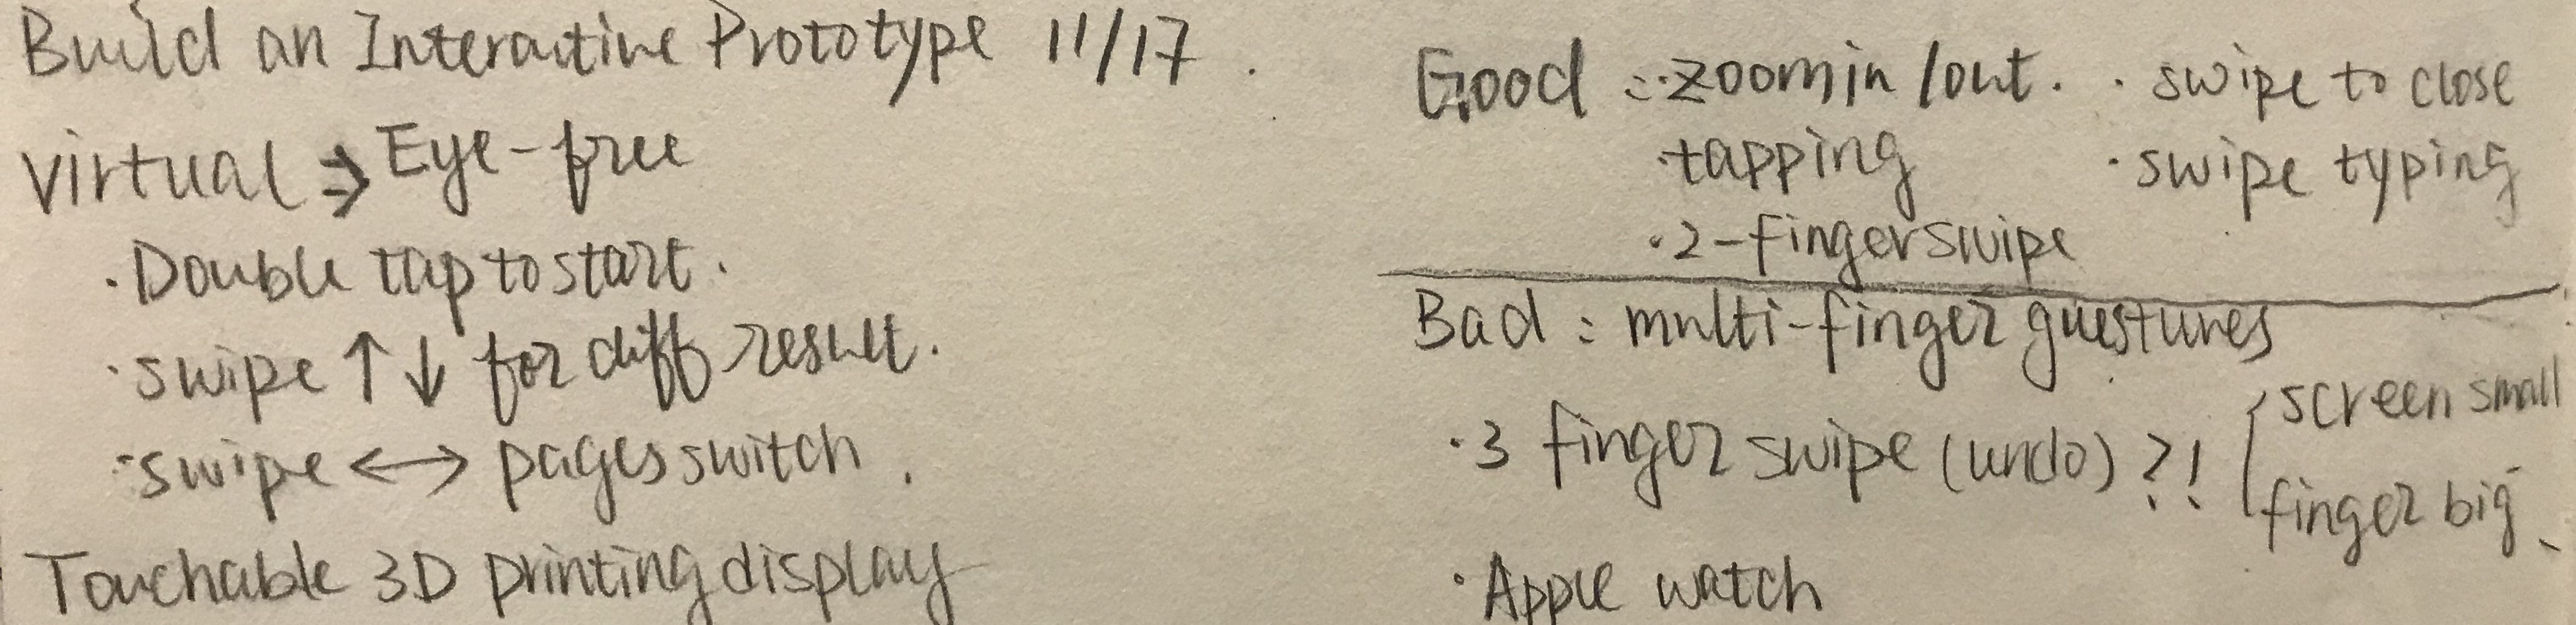 Build an Interactive Prototype 11/17.
Virtual ⇒ Eye-free
· Double tap to start.
· swipe ↑↓ for diff result.
· swipe ↔ pages switch.
Touchable 3D printing display
Good : · zoom in /out.
· tapping
· 2-finger swipe
· swipe to close
· swipe typing
Bad : multi-finger guestures
· 3 finger swipe (undo) ?!
screen small
finger big
· Apple watch